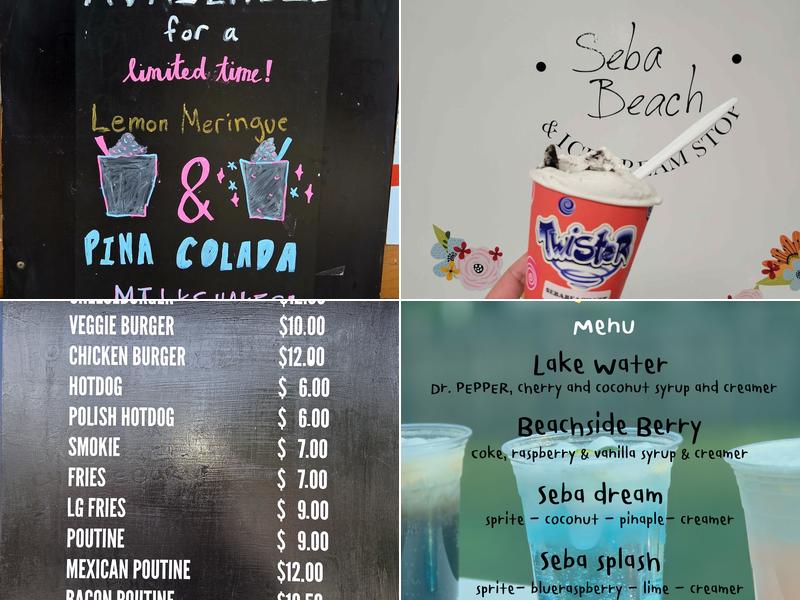 for a
limited time!
Lemon Meringue
&
PINA COLADA
Seba
Beach
& ICE CREAM STOP
TwisteR
VEGGIE BURGER $10.00
CHICKEN BURGER $12.00
HOTDOG $ 6.00
POLISH HOTDOG $ 6.00
SMOKIE $ 7.00
FRIES $ 7.00
LG FRIES $ 9.00
POUTINE $ 9.00
MEXICAN POUTINE $12.00
BACON POUTINE
Menu
Lake water
Dr. PEPPER, cherry and coconut syrup and creamer
Beachside Berry
coke, raspberry & vanilla syrup & creamer
Seba dream
sprite - coconut - pinaple- creamer
Seba splash
sprite- blueraspberry - lime - creamer